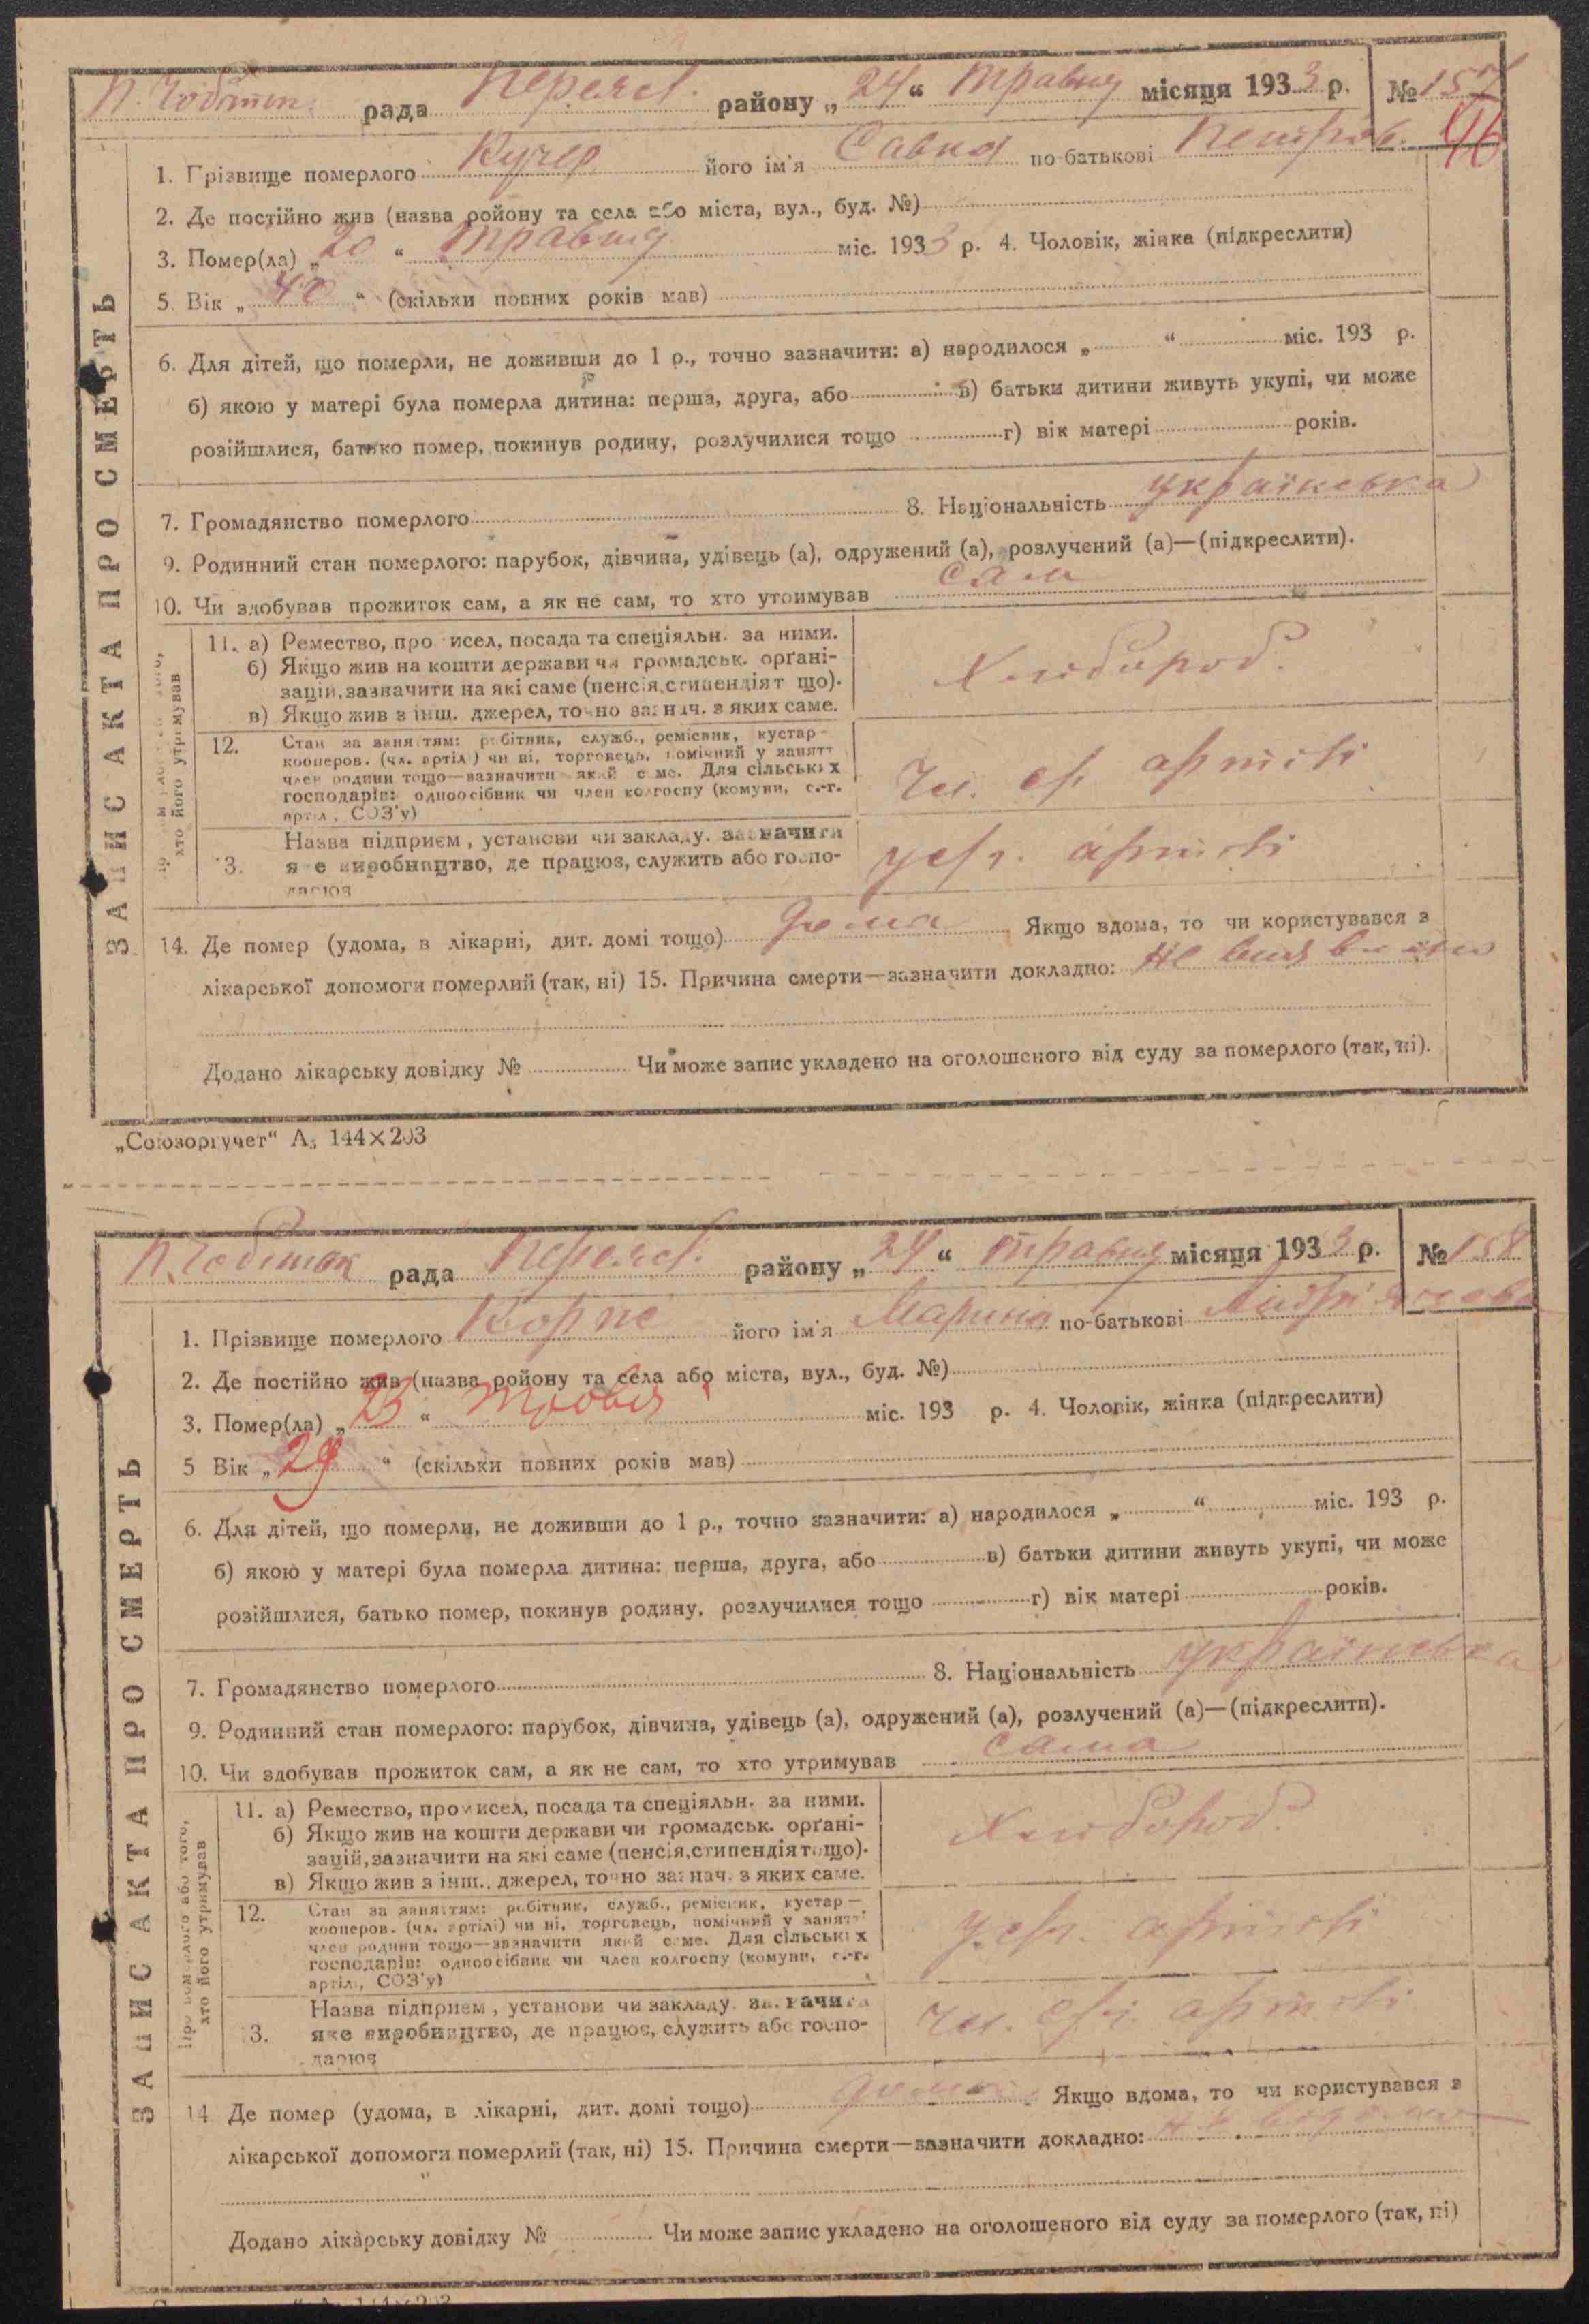 рада Переясл. району „ 24 “ травня місяця 1933 р. № 157
46
ЗАПИС АКТА ПРО СМЕРТЬ
1. Прізвище померлого Кучер його ім'я Савка по-батькові Петров.
2. Де постійно жив (назва ройону та села або міста, вул., буд. №)
3. Помер(ла) „ 20 “ травня міс. 1933 р. 4. Чоловік, жінка (підкреслити)
5. Вік „ 40 “ (скільки повних років мав)
6. Для дітей, що померли, не доживши до 1 р., точно зазначити: а) народилося „ “ міс. 193 р.
б) якою у матері була померла дитина: перша, друга, або в) батьки дитини живуть укупі, чи може
розійшлися, батько помер, покинув родину, розлучилися тощо г) вік матері років.
7. Громадянство померлого 8. Національність українська
9. Родинний стан померлого: парубок, дівчина, удівець (а), одружений (а), розлучений (а)—(підкреслити).
10. Чи здобував прожиток сам, а як не сам, то хто утримував сам
хто його утримував
11. а) Ремество, промисел, посада та спеціяльн. за ними.
б) Якщо жив на кошти держави чи громадськ. орґані-
зацій, зазначити на які саме (пенсія, стипендія тощо).
в) Якщо жив з інш. джерел, точно зазнач. з яких саме.
Хлібороб.
12. Стан за заняттям: робітник, служб., ремісник, кустар—
кооперов. (чл. артілі) чи ні, торговець, помічний у занятт
член родини тощо—зазначити який саме. Для сільських
господарів: одноосібник чи член колгоспу (комуни, с.-г.
артіл., СОЗ'у)
Чл. с/г артілі
13. Назва підприєм., установи чи закладу. зазначити
яке виробництво, де працює, служить або госпо-
дарює
у с/г. артілі
14. Де помер (удома, в лікарні, дит. домі тощо) дома Якщо вдома, то чи користувався з
лікарської допомоги померлий (так, ні) 15. Причина смерти—зазначити докладно: не
Додано лікарську довідку № Чи може запис укладено на оголошеного від суду за померлого (так, ні).
„Союзоргучет“ А₅ 144×203
рада Переясл. району „ 24 “ травня місяця 1933 р. № 158
ЗАПИС АКТА ПРО СМЕРТЬ
1. Прізвище померлого його ім'я Марина по-батькові
2. Де постійно жив (назва ройону та села або міста, вул., буд. №)
3. Помер(ла) „ 23 “ травня міс. 193 р. 4. Чоловік, жінка (підкреслити)
5 Вік „ 29 “ (скільки повних років мав)
6. Для дітей, що померли, не доживши до 1 р., точно зазначити: а) народилося „ “ міс. 193 р.
б) якою у матері була померла дитина: перша, друга, або в) батьки дитини живуть укупі, чи може
розійшлися, батько помер, покинув родину, розлучилися тощо г) вік матері років.
7. Громадянство померлого 8. Національність українська
9. Родинний стан померлого: парубок, дівчина, удівець (а), одружений (а), розлучений (а)—(підкреслити).
10. Чи здобував прожиток сам, а як не сам, то хто утримував сама
Про померлого або того,
хто його утримував
11. а) Ремество, промисел, посада та спеціяльн. за ними.
б) Якщо жив на кошти держави чи громадськ. орґані-
зацій, зазначити на які саме (пенсія, стипендія тощо).
в) Якщо жив з інш., джерел, точно зазнач. з яких саме.
Хлібороб.
12. Стан за заняттям: робітник, служб., ремісник, кустар—
кооперов. (чл. артілі) чи ні, торговець, помічний у занятт
член родини тощо—зазначити який саме. Для сільських
господарів: одноосібник чи член колгоспу (комуни, с.-г.
артіл., СОЗ'у)
у с/г. артілі
13. Назва підприєм., установи чи закладу. зазначити
яке виробництво, де працює, служить або госпо-
дарює
чл. с/г артілі
14 Де помер (удома, в лікарні, дит. домі тощо) дома Якщо вдома, то чи користувався з
лікарської допомоги померлий (так, ні) 15. Причина смерти—зазначити докладно: не відомо
Додано лікарську довідку № Чи може запис укладено на оголошеного від суду за померлого (так, ні)